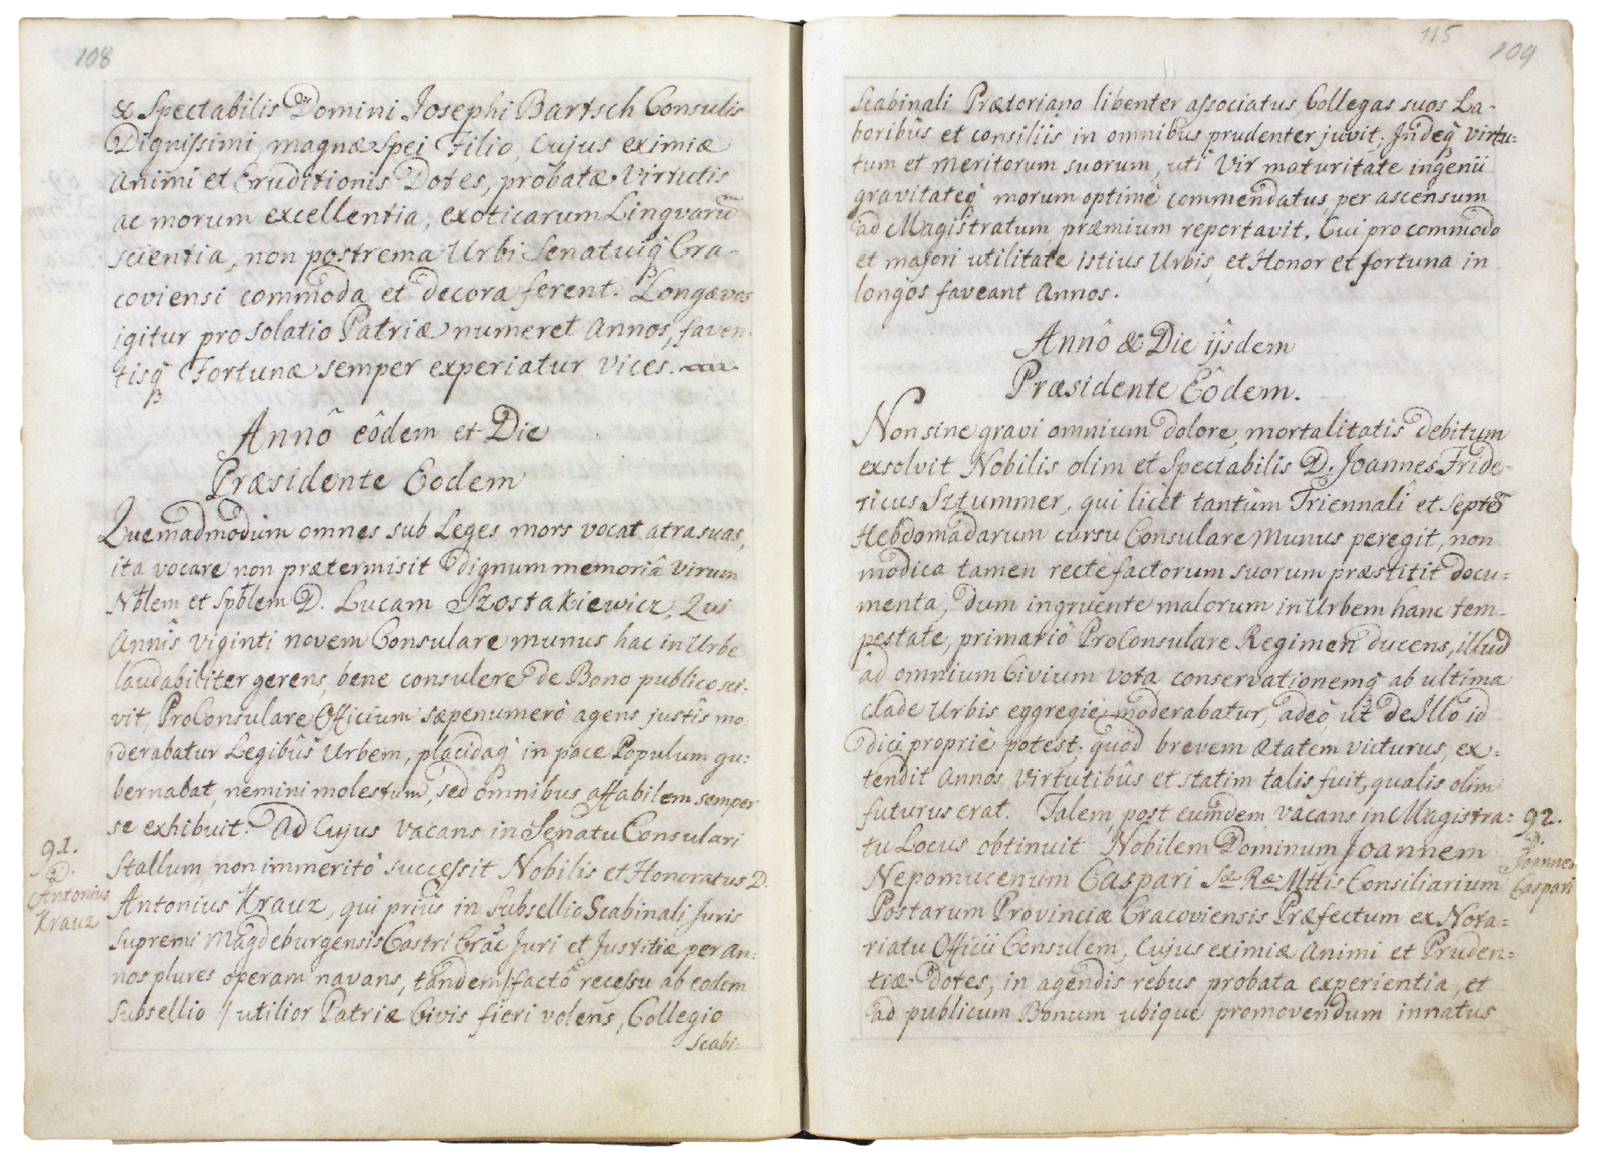 108
& Spectabilis Domini Josephi Bartsch Consulis
Dignissimi, magnæ Spei Filio, Cujus eximiæ
Animi et Eruditionis Dotes, probatæ Virtutis
ac morum excellentia, exoticarum Lingvarũ
scientia, non postrema Urbi Senatuiq́ Cra-
coviensi commoda et decora ferent. Longævos
igitur pro Solatio Patriæ numeret Annos, faven-
tisq́ Fortunæ semper experiatur vices.
Annô eôdem et Die
Præsidente Eodem
Quemadmodum omnes sub Leges mors vocat atra suas,
ita vocare non prætermisit Dignum memoriâ Virum
Nblem et Spblem D. Lucam Szostakiewicz, Qui
Annis viginti novem Consulare munus hac in Urbe
laudabiliter gerens, bene consulere de Bono publico sci-
vit, ProConsulare Officium sæpenumerò agens justis mo-
derabatur Legibûs Urbem, placidaq́ in pace Populum gu:
bernabat, nemini molestum, sed omnibus affabilem semper
se exhibuit. Ad Cujus vacans in Senatu Consulari
91.
D.
Antonius
Krauz
Stallum, non immeritò successit Nobilis et Honoratus D.
Antonius Krauz, qui priûs in Subsellio Scabinali Juris
Supremi Magdeburgensis Castri Crac̃ Juri et Justitiæ per an:
nos plures operam navans, tandem /: factô recessu ab eodem
Subsellio :/ utilior Patriæ Civis fieri volens, Collegio
Scabi:
115
109
Scabinali Prætoriano libenter associatus, Collegas suos La-
boribûs et consiliis in omnibus prudenter juvit; Indeq́ virtu:
tum et Meritorum suorum, uti Vir maturitate ingenii
gravitateq́ morum optimè commendatus, per ascensum
ad Magistratum, præmium reportavit. Cui pro commodo
et majori utilitate istius Urbis, et Honor et fortuna in
longos faveant Annos.
Annô & Die ijsdem
Præsidente Eôdem.
Non sine gravi omnium dolore, mortalitatis debitum
exsolvit Nobilis olim et Spectabilis D. Joannes Fride-
ricus Sztummer, qui licèt tantùm Triennali et Septẽ
Hebdomadarum cursu Consulare Munus peregit, non
modica tamen recte factorum suorum præstitit docu:
menta, dum ingruente malorum in Urbem hanc tem-
pestate, primariô ProConsulare Regimen ducens, illud
ad omnium Civium vota, conservationemq́ ab ultima
clade Urbis eggregiè moderabatur, adeò, ut de Illô id
dici propriè potest: quôd brevem ætatem victurus, ex:
tendit Annos, Virtutibûs et statim talis fuit, qualis olim
futurus erat. Talem, post eumdem, vacans in Magistra:
tu Locus obtinuit Nobilem Dominum Joannem
92.
D.
Joannes
Caspari
Nepomucenum Caspari Sæ Ræ Mttis Consiliarium
Postarum Provinciæ Cracoviensis Præfectum ex Nota:
riatu Officii Consulem, Cujus eximiæ Animi et Pruden:
tiæ Dotes, in agendis rebus probata experientia, et
ad publicum Bonum ubique promovendum innatus